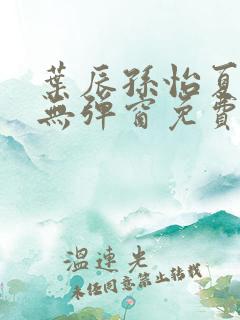 葉辰孫怡夏
無彈窗免費
溫連先
未经同意禁止转载